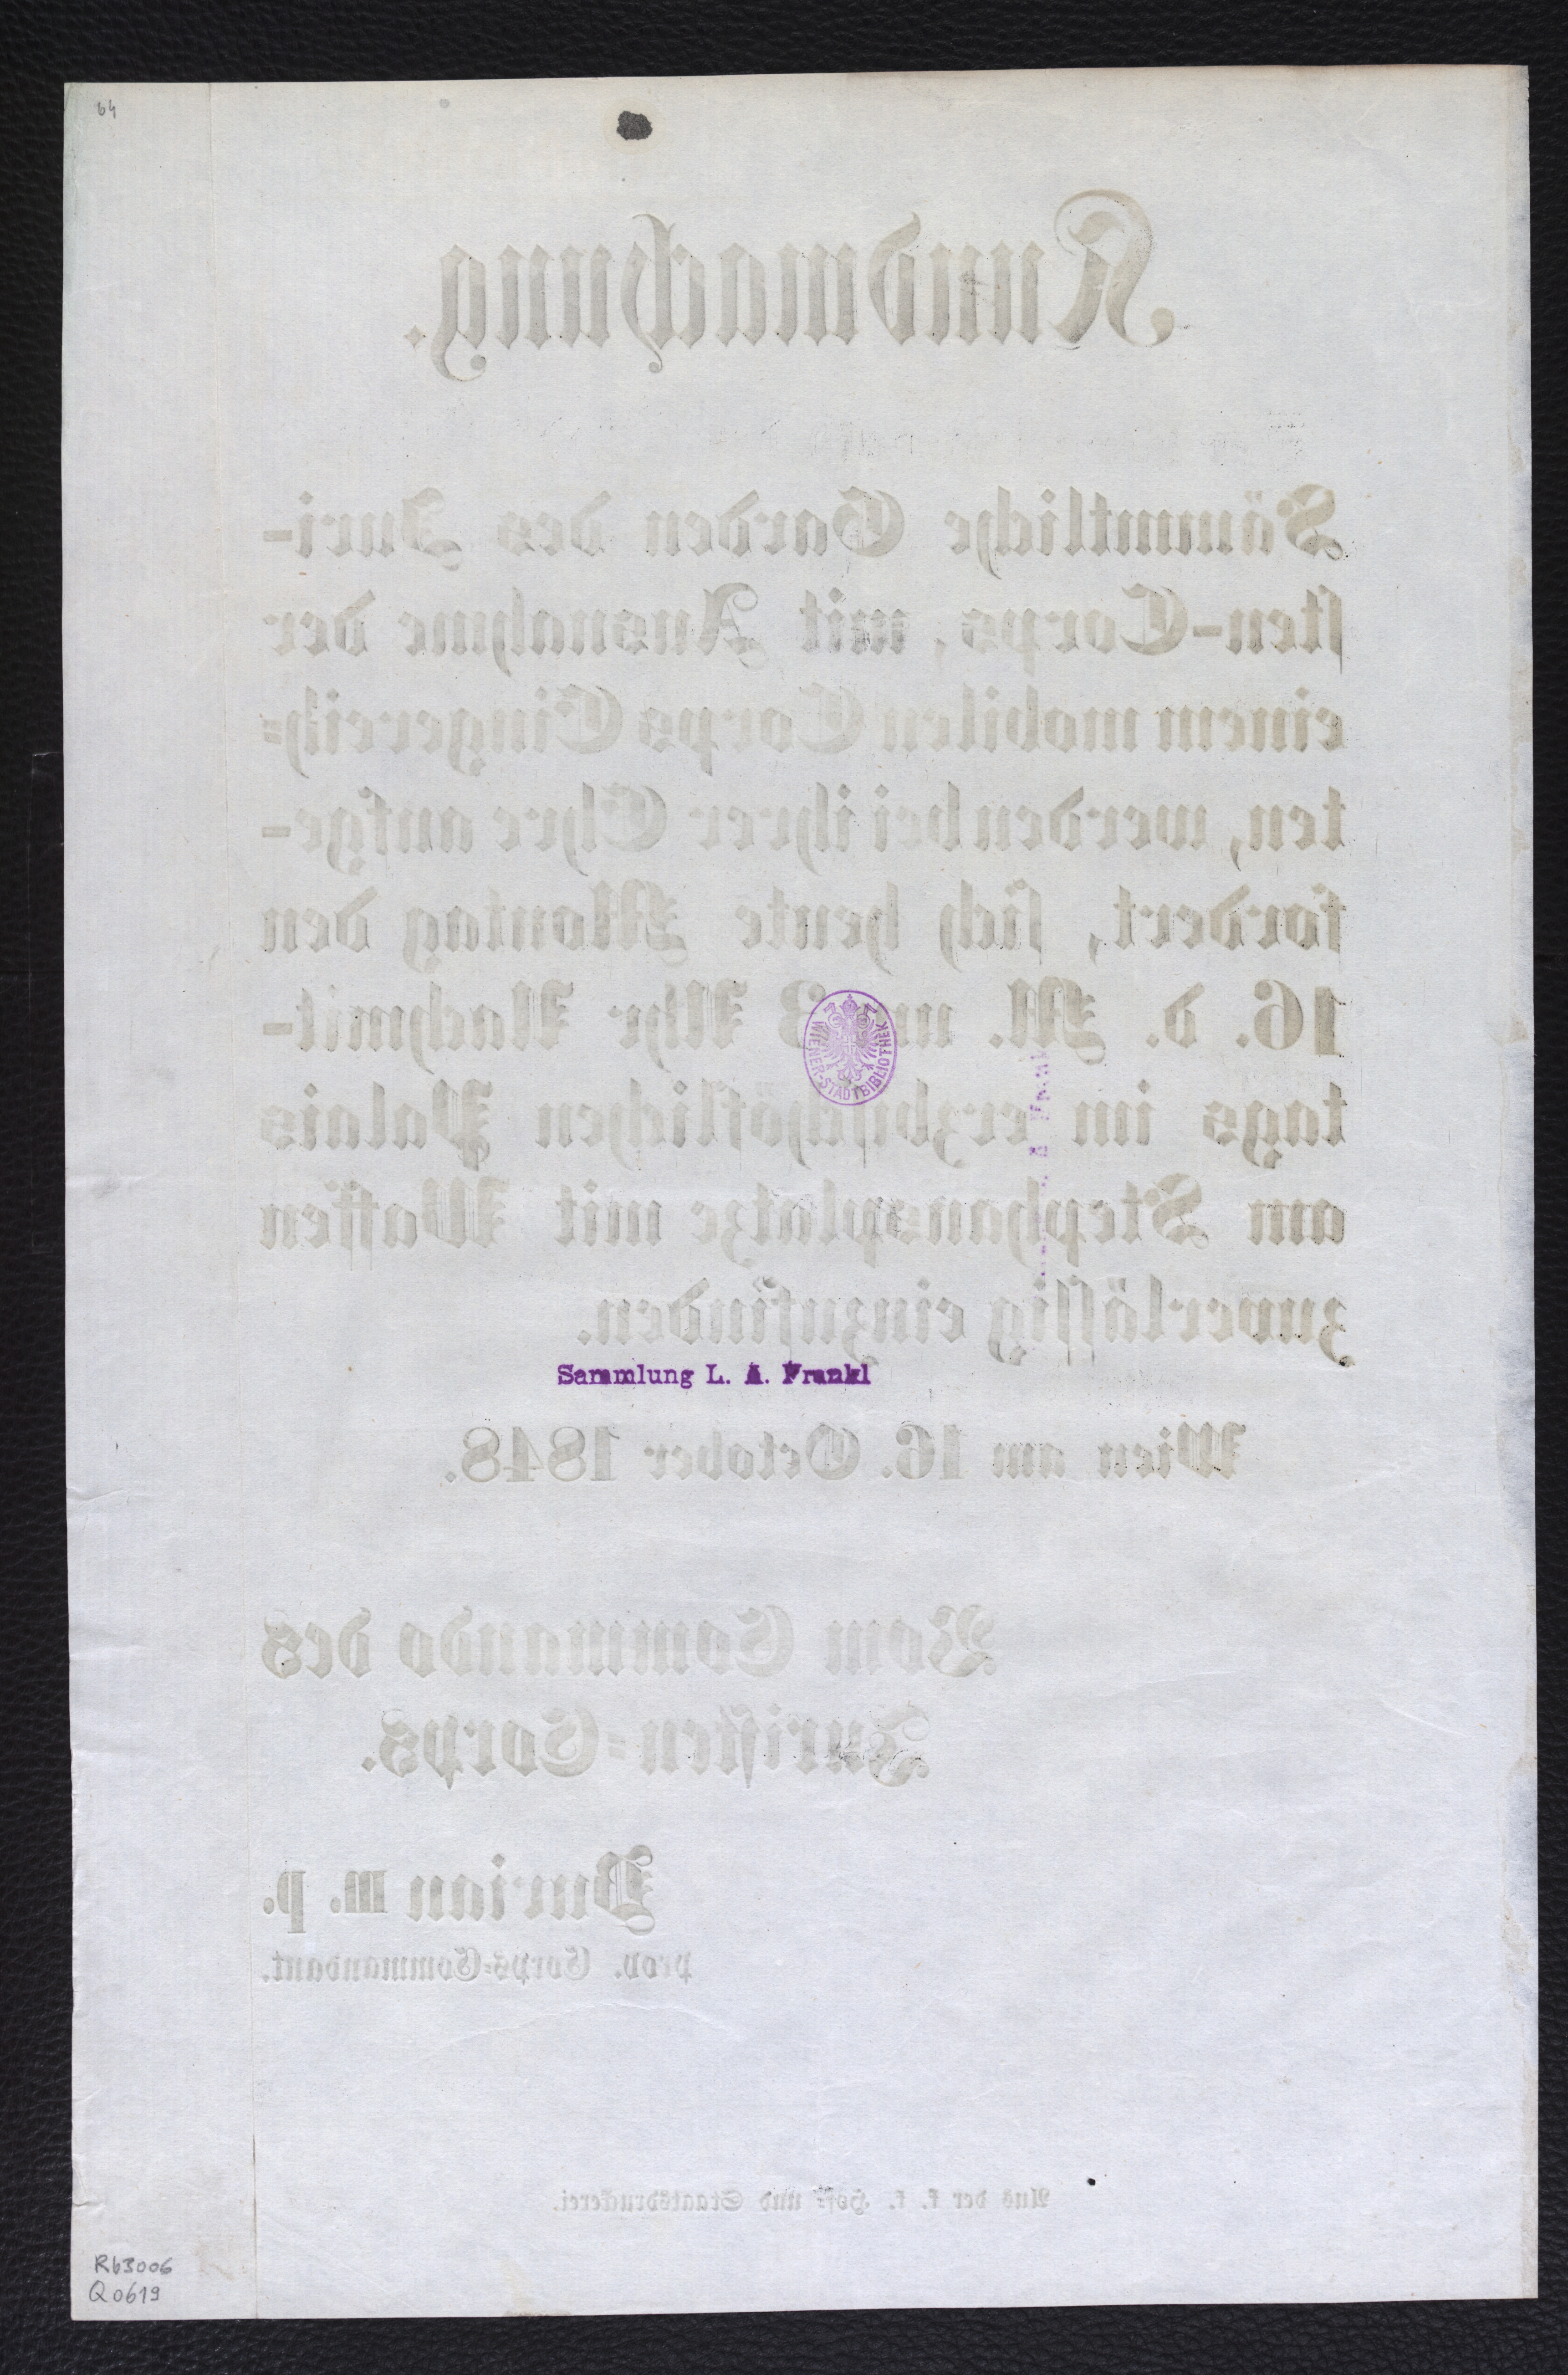 64
Kundmachung.
Sämmtliche Garden des Juri-
sten-Corps, mit Ausnahme der
einem mobilen Corps Eingereih-
ten, werden bei ihrer Ehre aufge-
fordert, sich heute Montag den
16. d. M. um 3 Uhr Nachmit-
tags im erzbischöflichen Palais
am Stephansplatze mit Waffen
zuverlässig einzufinden.
WIENER-STADTBIBLIOTHEK
Sammlung L. A. Frankl
Wien am 16. October 1848.
Vom Commando des
Juristen-Corps.
Burian m. p.
prov. Corps-Commandant.
Aus der k. k. Hof- und Staatsdruckerei.
Rb3006
Q0619